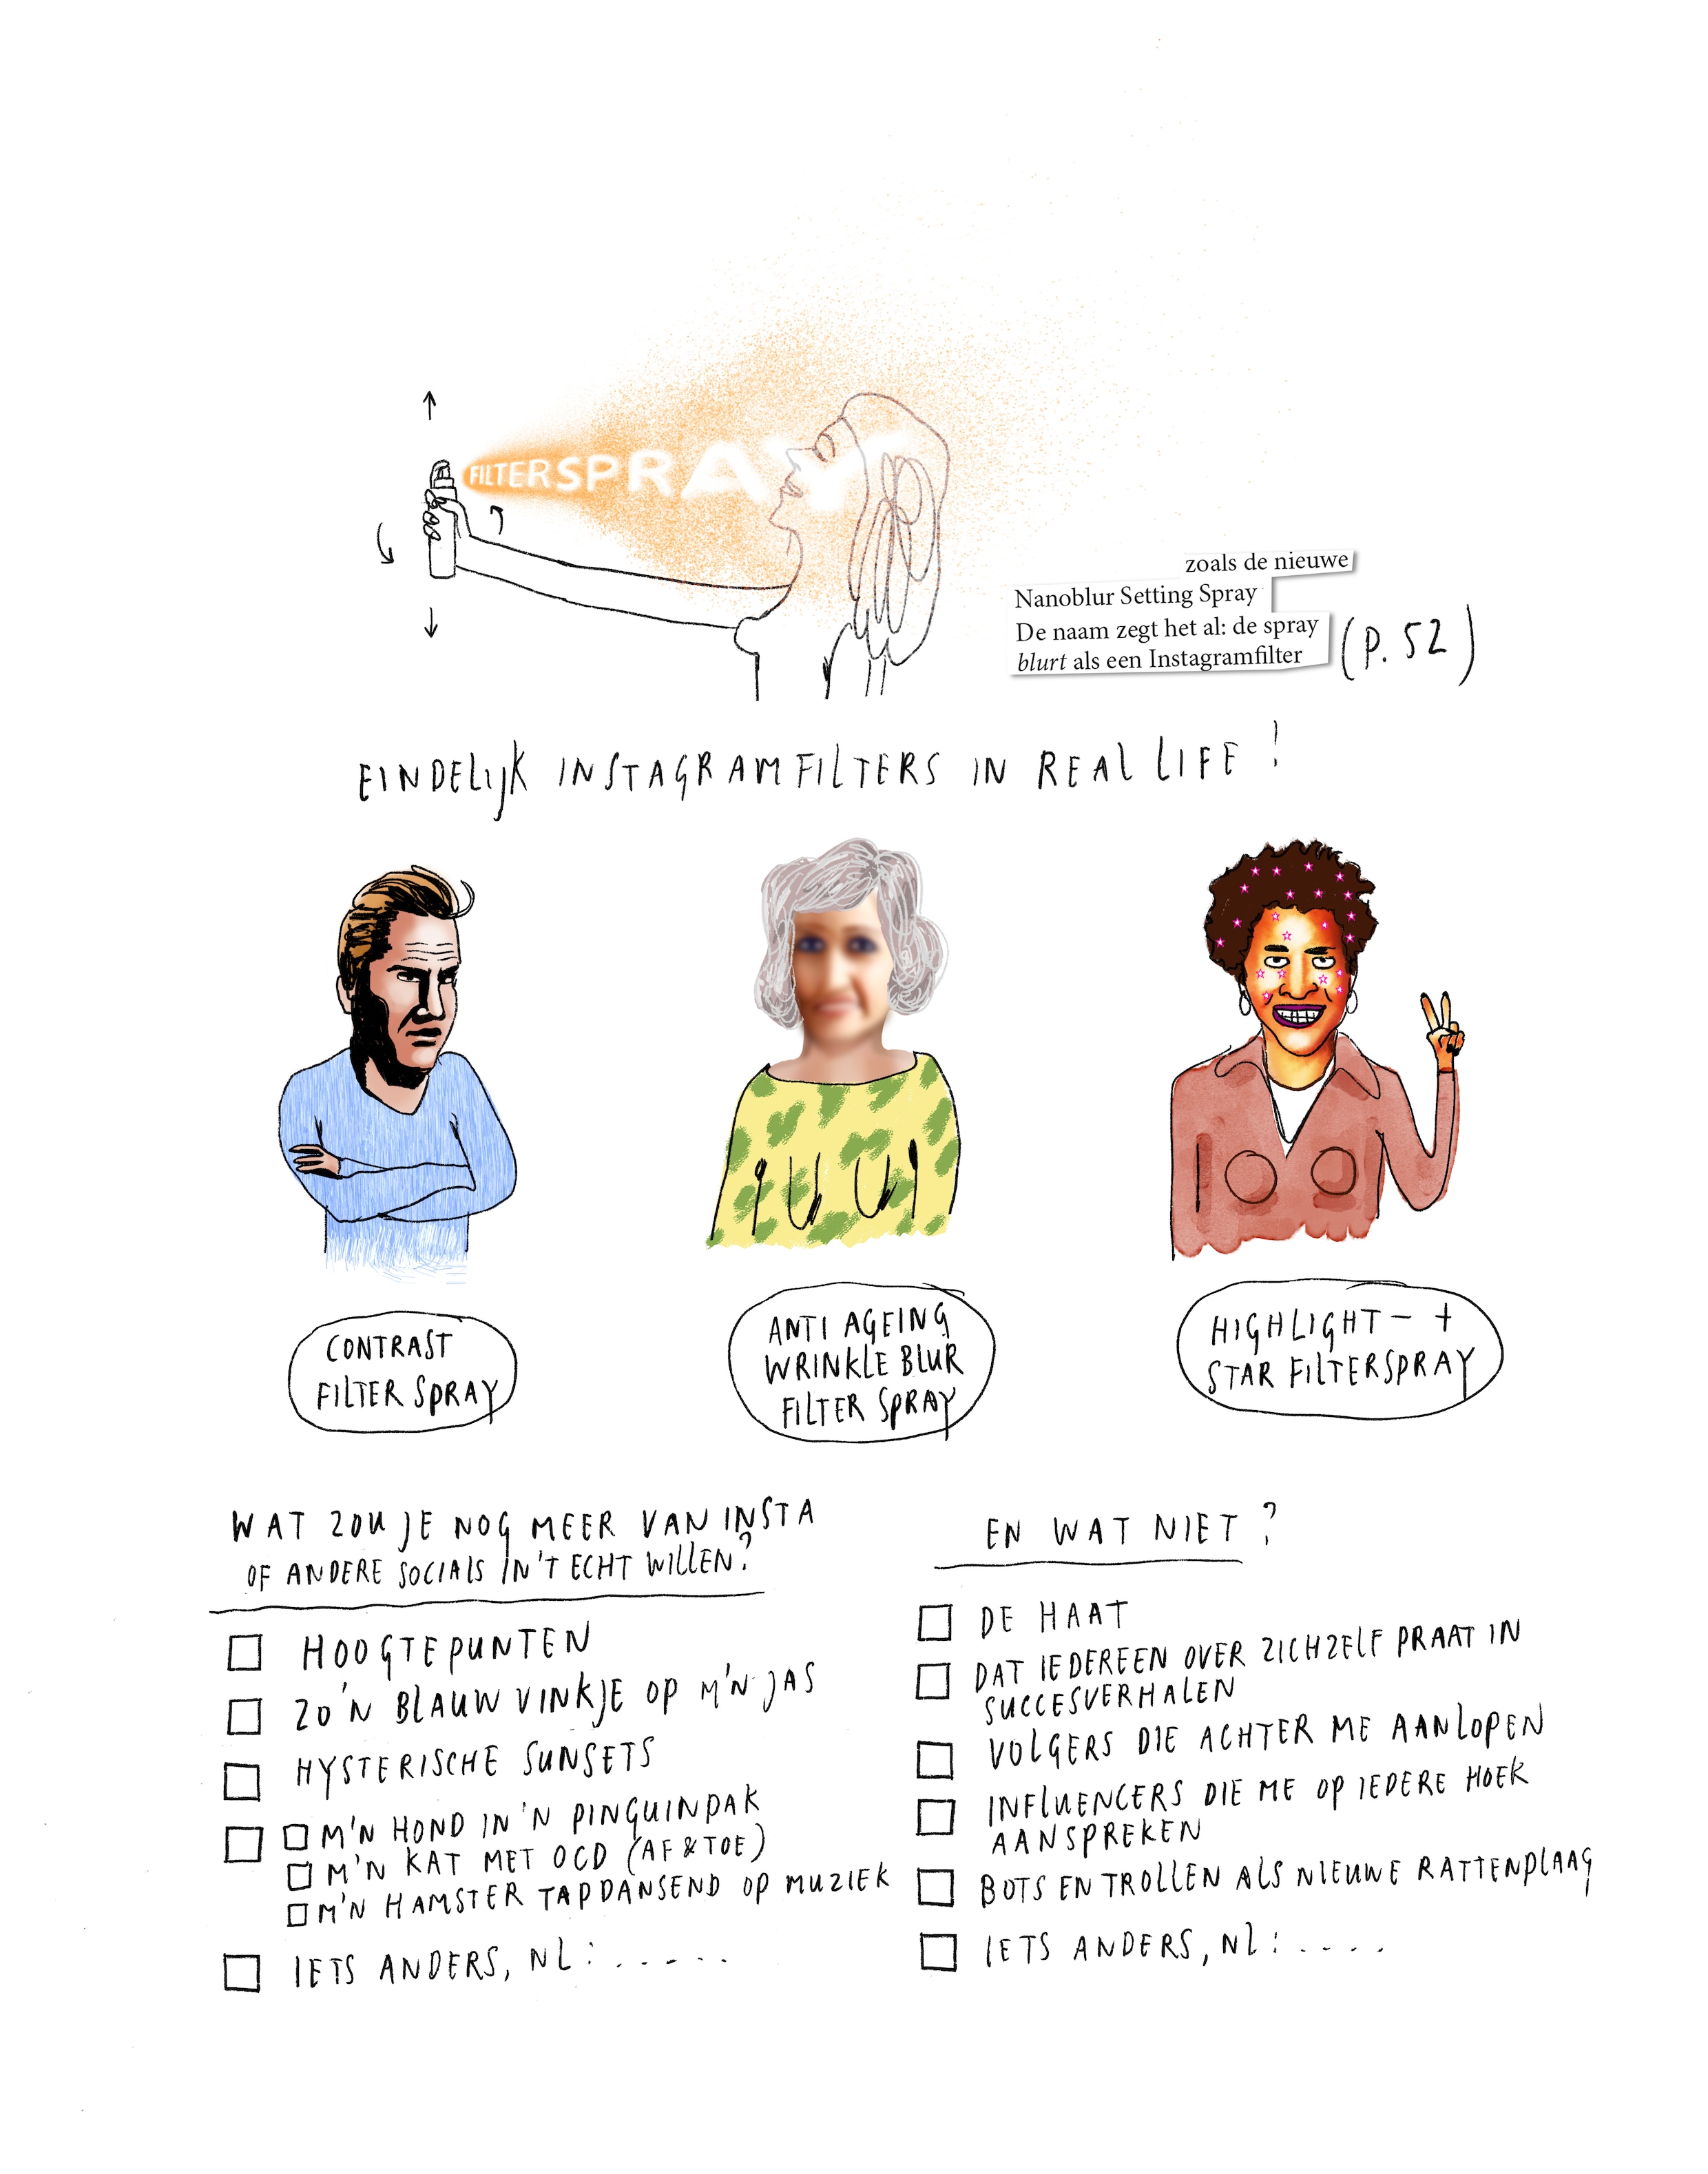 FILTERSPRAY
zoals de nieuwe
Nanoblur Setting Spray
De naam zegt het al: de spray
blurt als een Instagramfilter
(P. 52)
EINDELIJK INSTAGRAMFILTERS IN REAL LIFE!
CONTRAST
FILTER SPRAY
ANTI AGEING
WRINKLE BLUR
FILTER SPRAY
HIGHLIGHT- +
STAR FILTERSPRAY
WAT ZOU JE NOG MEER VAN INSTA
OF ANDERE SOCIALS IN 'T ECHT WILLEN?
HOOGTEPUNTEN
ZO'N BLAUW VINKJE OP M'N JAS
HYSTERISCHE SUNSETS
M'N HOND IN 'N PINGUINPAK
M'N KAT MET OCD (AF & TOE)
M'N HAMSTER TAPDANSEND OP MUZIEK
IETS ANDERS, NL: .....
EN WAT NIET?
DE HAAT
DAT IEDEREEN OVER ZICHZELF PRAAT IN
SUCCESVERHALEN
VOLGERS DIE ACHTER ME AANLOPEN
INFLUENCERS DIE ME OP IEDERE HOEK
AANSPREKEN
BOTS EN TROLLEN ALS NIEUWE RATTENPLAAG
IETS ANDERS, NL: ....